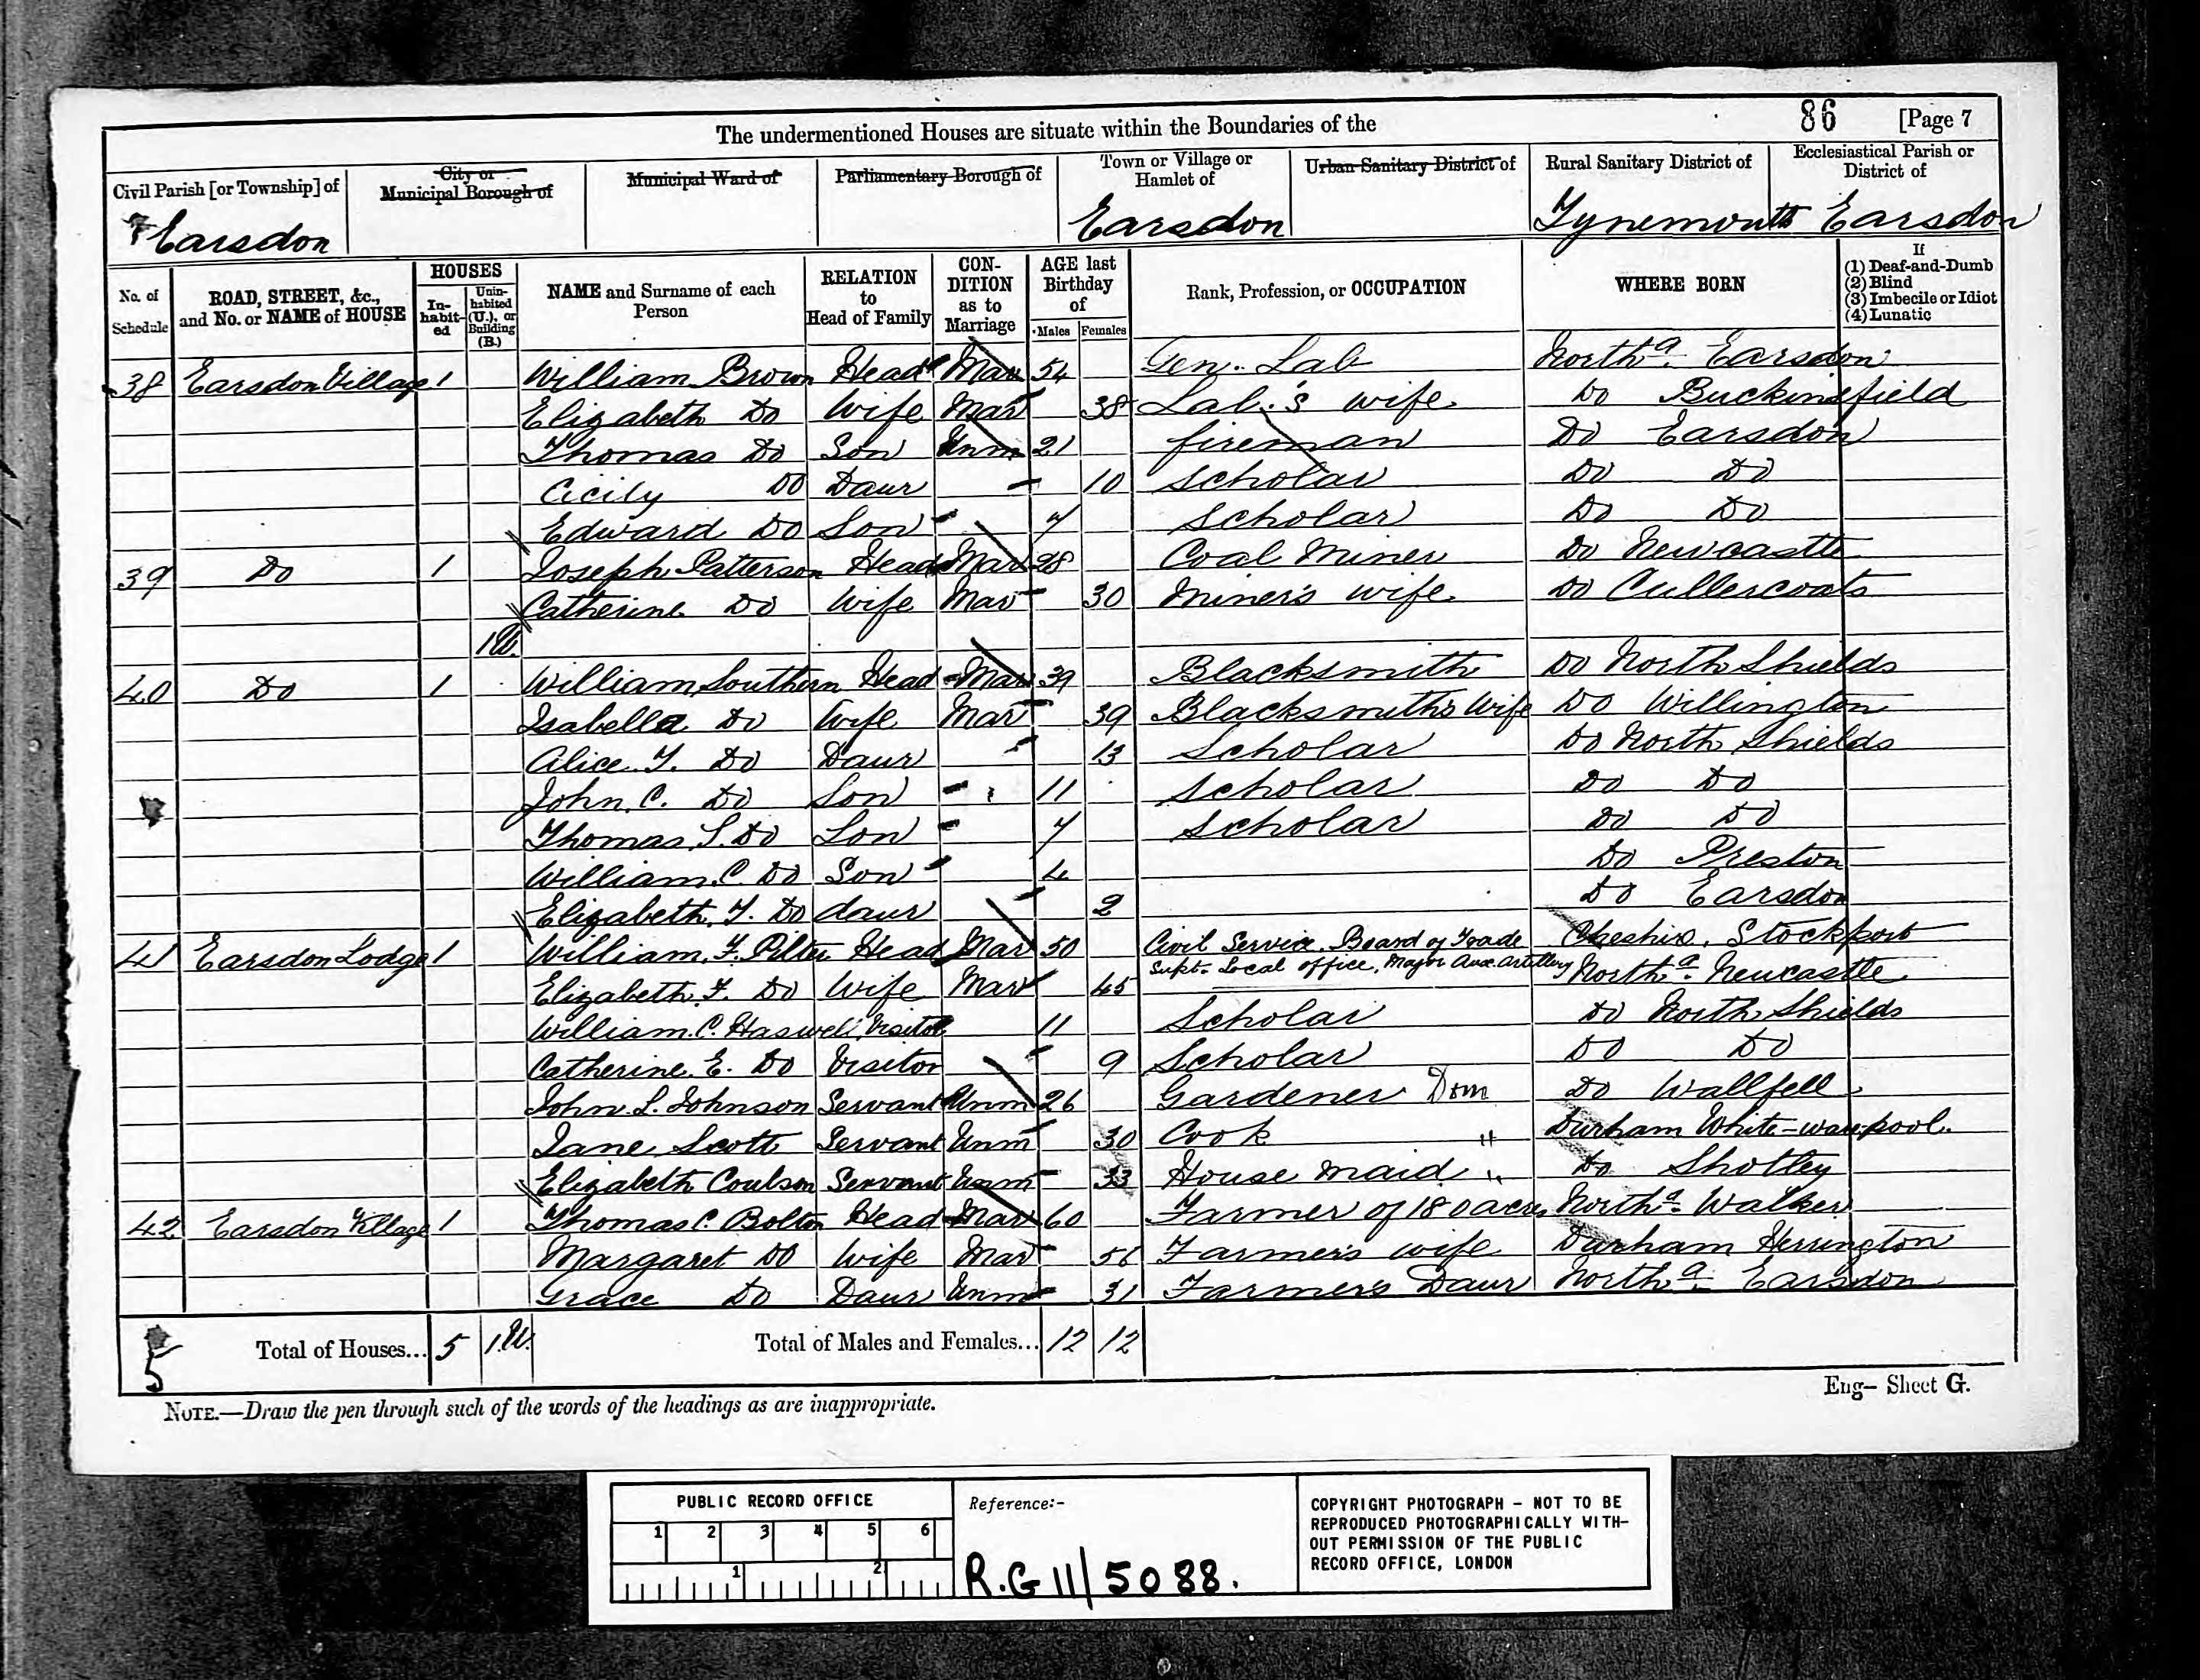 The undermentioned Houses are situate within the Boundaries of the 86 [Page 7
Civil Parish [or Township] of City or Municipal Borough of Municipal Ward of Parliamentary Borough of Town or Village or Hamlet of Urban Sanitary District of Rural Sanitary District of Ecclesiastical Parish or District of
Earsdon Earsdon Tynemouth Earsdon
No. of Schedule ROAD, STREET, &c., and No. or NAME of HOUSE HOUSES Inhabited Uninhabited (U.), or Building (B.) NAME and Surname of each Person RELATION to Head of Family CONDITION as to Marriage AGE last Birthday of Males Females Rank, Profession, or OCCUPATION WHERE BORN If (1) Deaf-and-Dumb (2) Blind (3) Imbecile or Idiot (4) Lunatic
38 Earsdon Village 1 William Brown Head Mar 54 Gen. Lab Northa. Earsdon
Elizabeth Do Wife Mar 38 Lab.'s wife Do Buckinsfield
Thomas Do Son Unm 21 fireman Do Earsdon
Cicily Do Daur 10 Scholar Do Do
Edward Do Son 7 Scholar Do Do
39 Do 1 Joseph Patterson Head Mar 28 Coal Miner Do Newcastle
Catherine Do Wife Mar 30 Miner's wife Do Cullercoats
1U.
40 Do 1 William Southern Head Mar 39 Blacksmith Do North Shields
Isabella Do Wife Mar 39 Blacksmith's Wife Do Willington
Alice Y. Do Daur 13 Scholar Do North Shields
John C. Do Son 11 Scholar Do Do
Thomas S. Do Son 7 Scholar Do Do
William C. Do Son 4 Do Preston
Elizabeth Y. Do daur 2 Do Earsdon
41 Earsdon Lodge 1 William F. Pilter Head Mar 50 Civil Service. Board of Trade Cheshire, Stockport
Supt. Local office, Major Aux. Artillery
Elizabeth F. Do Wife Mar 45 Northa. Newcastle
William C. Haswell Visitor 11 Scholar Do North Shields
Catherine E. Do Visitor 9 Scholar Do Do
John L. Johnson Servant Unm 26 Gardener Dom Do Wallfell
Jane Scott Servant Unm 30 Cook " Durham White-warepool.
Elizabeth Coulson Servant Unm 33 House maid " Do Shotley
42 Earsdon Village 1 Thomas C. Bolton Head Mar 60 Farmer of 180 acres Northa. Walker
Margaret Do Wife Mar 56 Farmer's wife Durham Herrington
Grace Do Daur Unm 31 Farmer's Daur Northa. Earsdon
5 Total of Houses... 5 1.U. Total of Males and Females... 12 12
NOTE.—Draw the pen through such of the words of the headings as are inappropriate. Eng– Sheet G.
PUBLIC RECORD OFFICE
1 2 3 4 5 6
1 2
Reference:-
R.G 11/5088.
COPYRIGHT PHOTOGRAPH - NOT TO BE
REPRODUCED PHOTOGRAPHICALLY WITH-
OUT PERMISSION OF THE PUBLIC
RECORD OFFICE, LONDON